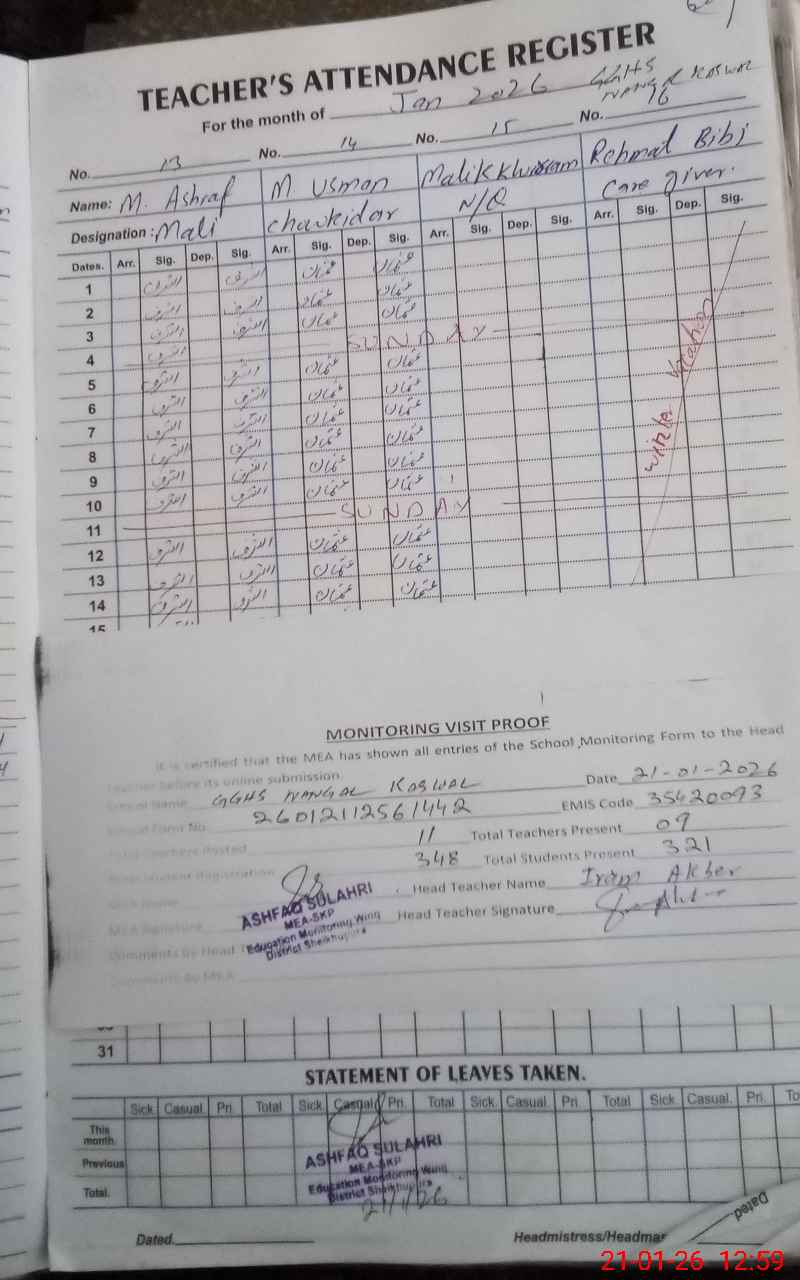 TEACHER'S ATTENDANCE REGISTER
For the month of Jan 2026 GGHS NANGAL KASWAL
No. 13 No. 14 No. 15 No. 16
Name: M. Ashraf M Usman Malik Khurram Rehmat Bibi
Designation: Mali Chowkidar N/Q Care giver.
Dates. Arr. Sig. Dep. Sig. Arr. Sig. Dep. Sig. Arr. Sig. Dep. Sig. Arr. Sig. Dep. Sig.
1 اشرف اشرف عثمان عثمان
2 اشرف اشرف عثمان عثمان
3 اشرف اشرف عثمان عثمان
4 اشرف SUNDAY
5 اشرف اشرف عثمان عثمان
6 اشرف اشرف عثمان عثمان
7 اشرف اشرف عثمان عثمان
8 اشرف اشرف عثمان عثمان
9 اشرف اشرف عثمان عثمان
10 اشرف اشرف عثمان عثمان
11 SUNDAY
12 اشرف اشرف عثمان عثمان
13 اشرف اشرف عثمان عثمان
14 اشرف اشرف عثمان عثمان
15
winter
MONITORING VISIT PROOF
It is certified that the MEA has shown all entries of the School Monitoring Form to the Head
Teacher before its online submission.
School Name GGHS NANGAL KASWAL Date 21-01-2026
Form No. 26012112561442 EMIS Code 35420093
Total Teachers Posted 11 Total Teachers Present 09
Student Registration 348 Total Students Present 321
MEA Name Head Teacher Name Iram Akber
MEA Signature Head Teacher Signature
ASHFAQ SULAHRI
MEA-SKP
Education Monitoring Wing
District Sheikhupura
Comments by Head
Comments by MEA
31
STATEMENT OF LEAVES TAKEN.
Sick Casual. Pri. Total Sick Casual Pri. Total Sick. Casual. Pri. Total Sick Casual. Pri. To
This month.
Previous
Total.
ASHFAQ SULAHRI
MEA-SKP
Education Monitoring Wing
District Sheikhupura
21/1/26
Dated. Headmistress/Headmas Dated.
21-01-26 12:59